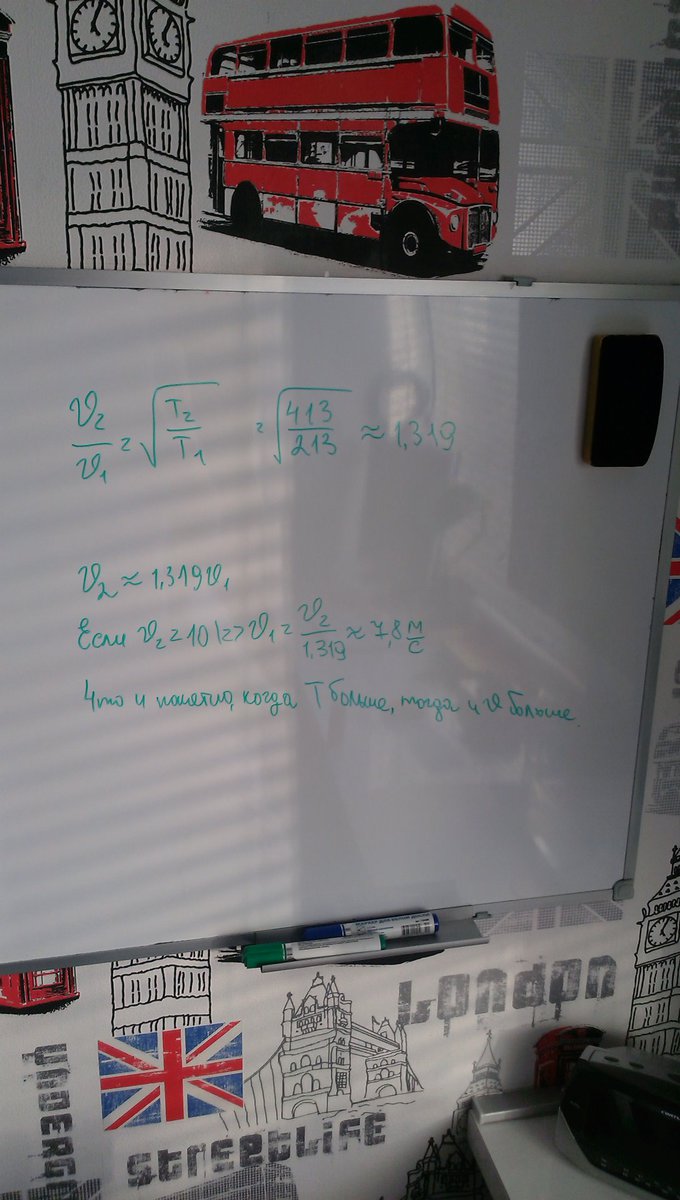 υ₂/υ₁ = √(T₂/T₁) = √(413/213) ≈ 1,319
υ₂ ≈ 1,319υ₁
Если υ₂ = 10 |=> υ₁ = υ₂/1,319 ≈ 7,8 м/с
Что и понятно, когда T больше, тогда и υ больше.
LONDON
UNDERGO
STREETLIFE